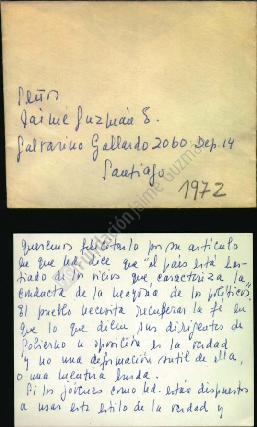 Señor
Jaime Guzmán E.
Galvarino Gallardo 2060 Dep. 14
Santiago
1972
Fundación Jaime Guzmán
Queremos felicitarlo por su artículo
en que Ud. dice que "el país está has-
tiado de los vicios que caracteriza la
conducta de la mayoría de los políticos".
El pueblo necesita recuperar la fé en
que lo que dicen sus dirigentes de
Gobierno u oposición es la verdad
y no una deformación sutil de ella,
o una mentira burda.
Si los jóvenes como Ud. están dispuestos
a usar este estilo de la verdad y